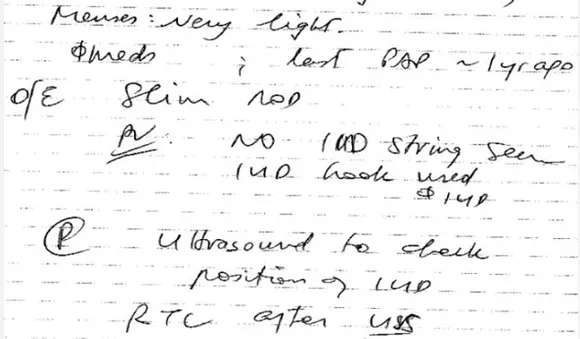 Menses: Very light.
∅meds ; last PAP ~ 1yr ago
O/E Slim NAD
PV: NO IUD string seen
IUD hook used
∅ IUD
Ⓟ Ultrasound to check
position of IUD
RTC after USS